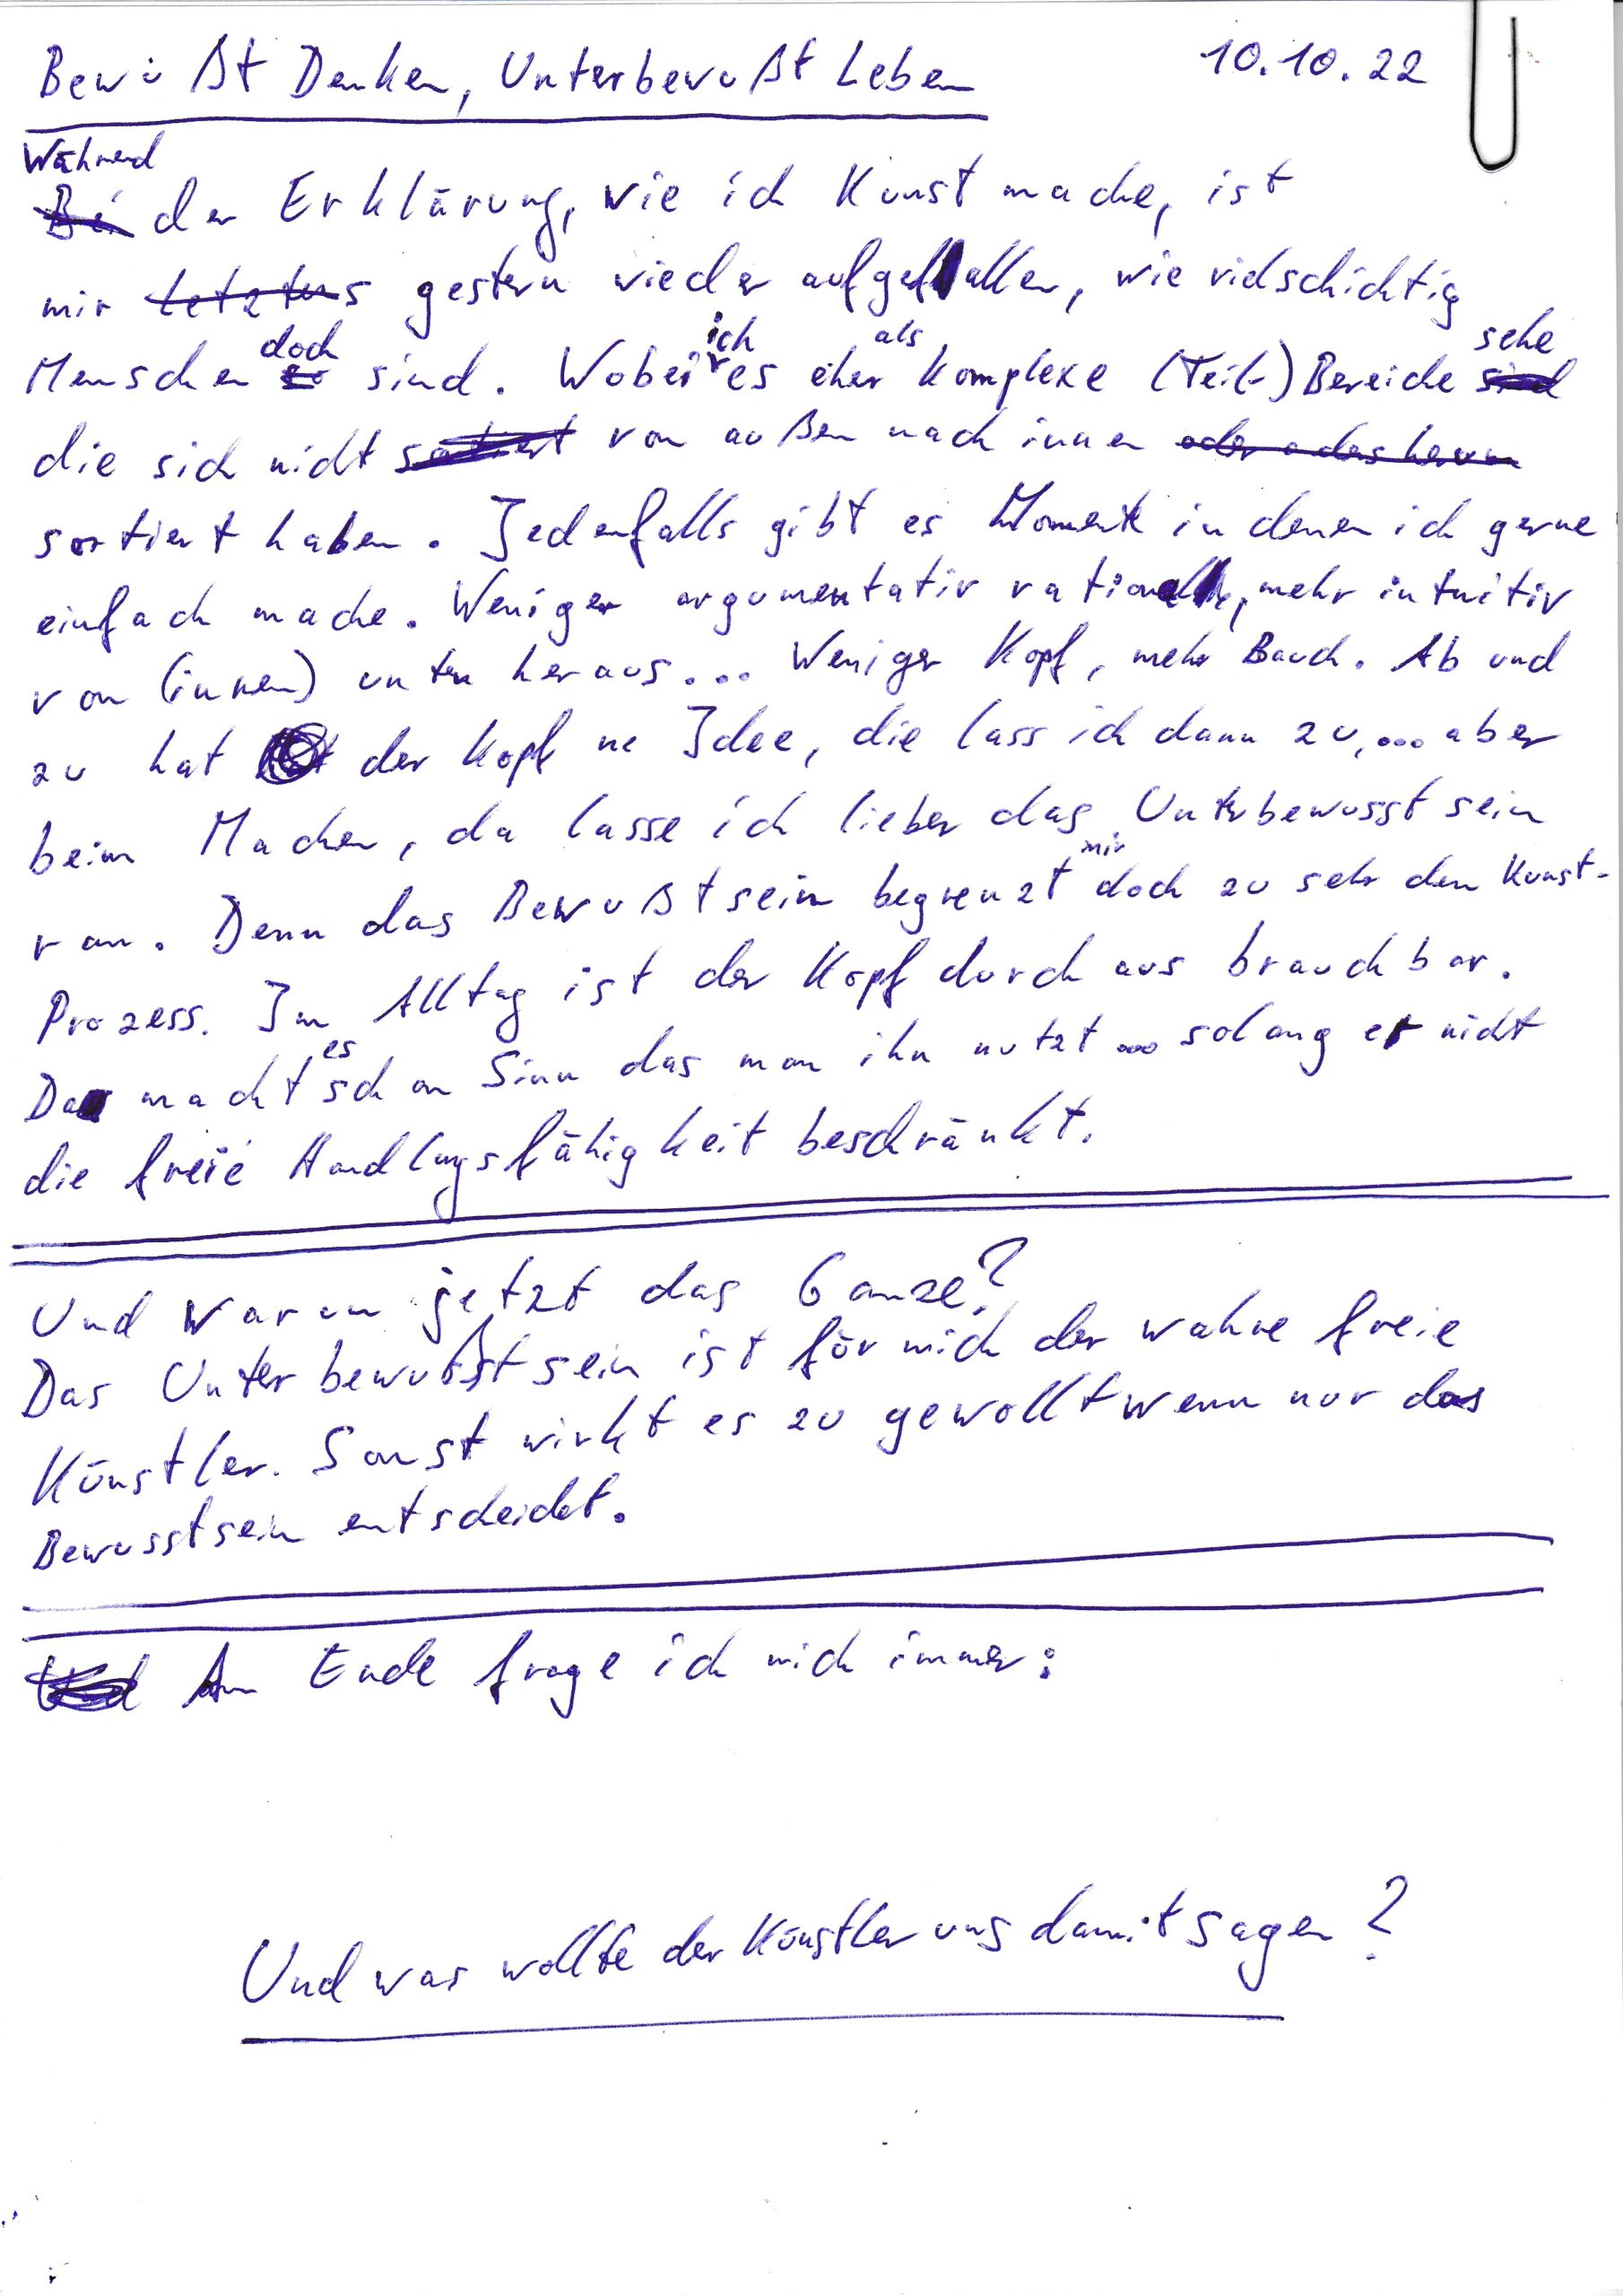 Bewußt Denken, Unterbewußt Leben 10.10.22
Während
Bei der Erklärung, wie ich Kunst mache, ist
mir letztens gestern wieder aufgefallen, wie vielschichtig
doch ich als sehe
Menschen so sind. Wobei es eher komplexe (Teil-)Bereiche sind
die sich nicht sortiert von außen nach innen oder anders herum
sortiert haben. Jedenfalls gibt es Momente in denen ich gerne
einfach mache. Weniger argumentativ rationell, mehr intuitiv
von (innen) unten heraus... Weniger Kopf, mehr Bauch. Ab und
zu hat der Kopf ne Idee, die lass ich dann zu,... aber
beim Machen, da lasse ich lieber das Unterbewusstsein
mir
ran. Denn das Bewußtsein begrenzt doch zu sehr den Kunst-
Prozess. Im Alltag ist der Kopf durchaus brauchbar.
es
Da macht schon Sinn das man ihn nutzt ... solang er nicht
die freie Handlungsfähigkeit beschränkt.
Und warum jetzt das Ganze?
Das Unterbewußtsein ist für mich der wahre freie
Künstler. Sonst wirkt es zu gewollt wenn nur das
Bewusstsein entscheidet.
Und Am Ende frage ich mich immer:
Und was wollte der Künstler uns damit sagen?